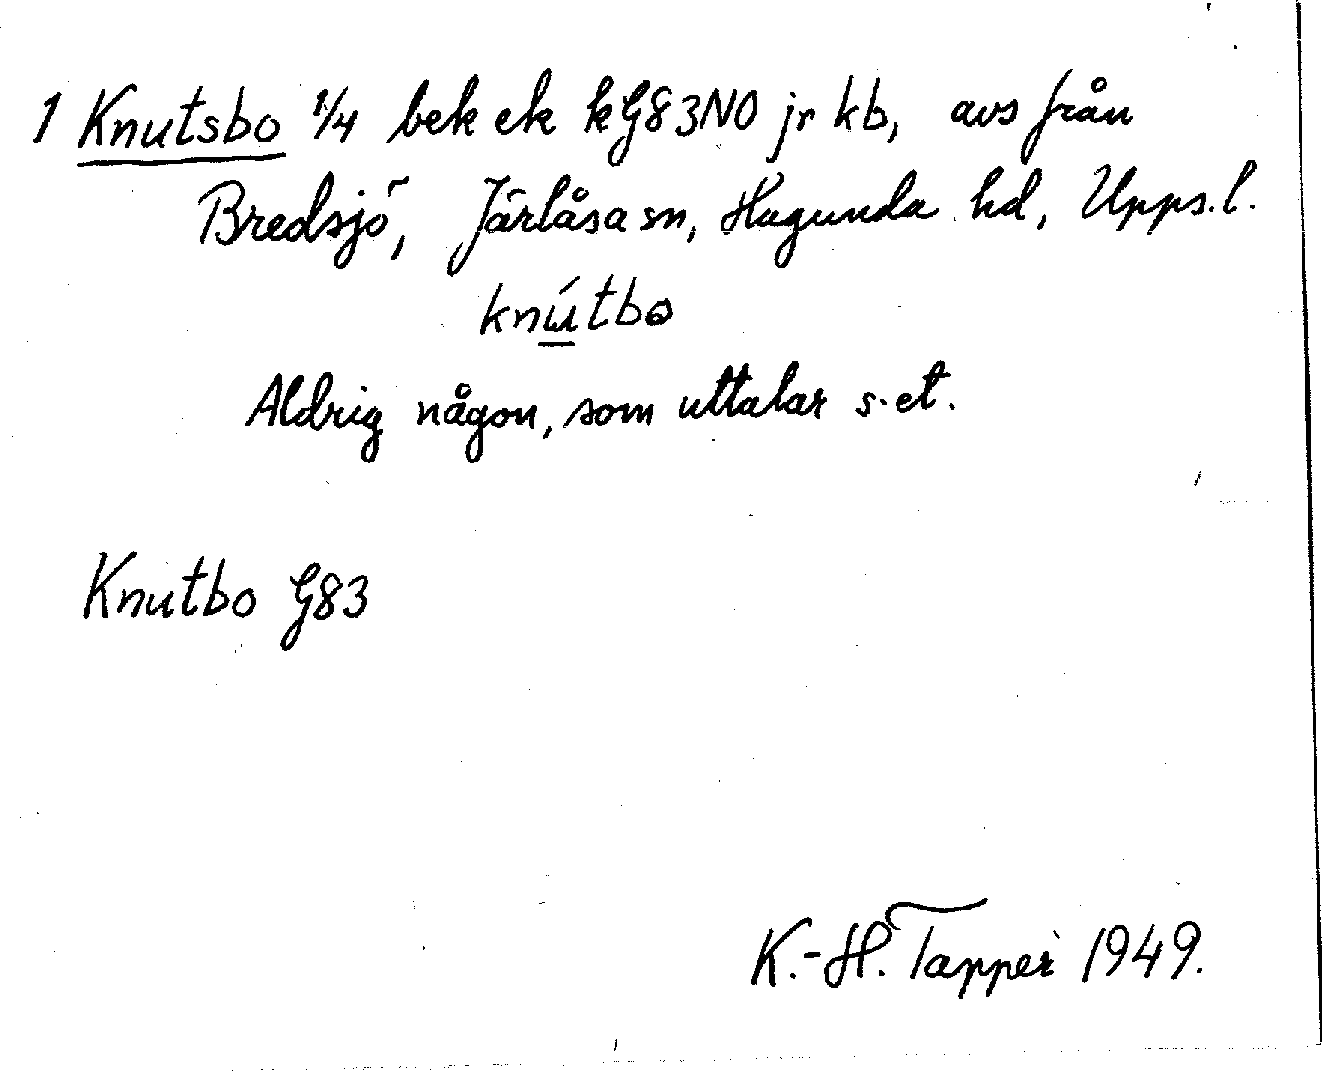 1 Knutsbo 1/4 bek ek kG83NO jr kb, avs från
Bredsjö, Järlåsa sn, Hagunda hd, Upps.l.
knútbo
Aldrig någon, som uttalar s-et.
Knutbo G83
K.-H. Tapper 1949.